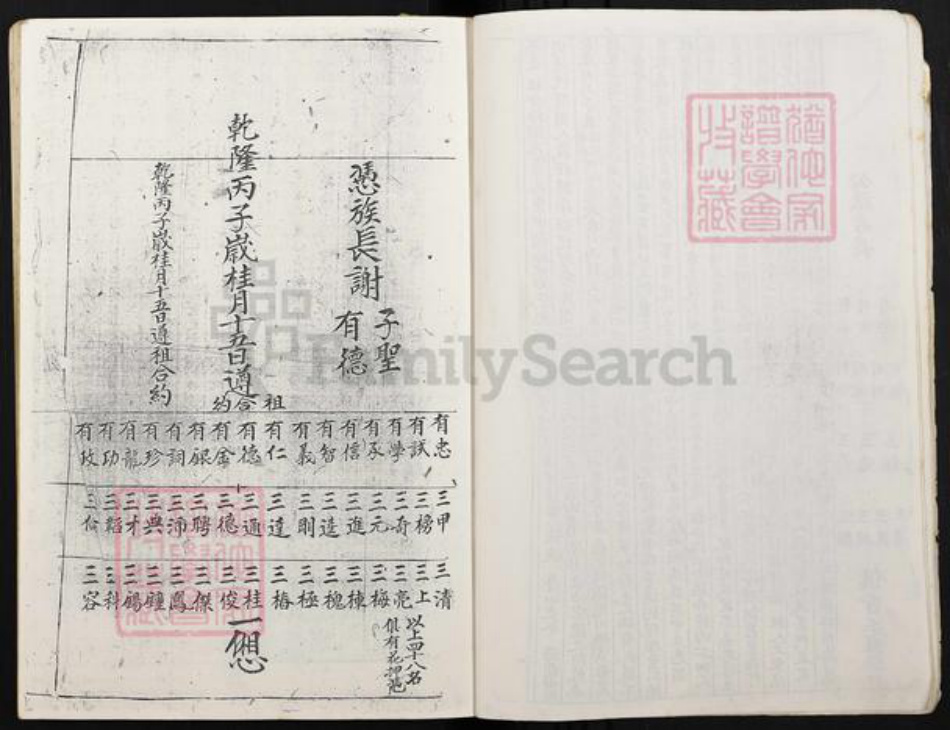 憑族長謝 子聖
有德
乾隆丙子歲桂月十五日遵祖合約
乾隆丙子歲桂月十五日遵祖合約
有忠 有試 有學 有承 有信 有智 有義 有仁 有德 有金 有銀 有詞 有珍 有龍 有功 有政
三甲 三榜 三奇 三元 三進 三造 三則 三達 三通 三德 三聘 三沛 三典 三才 三韜 三
三清 三上 三亮 三梅 三棟 三槐 三極 三椿 三桂 三俊 三傑 三鳳 三鐘 三錫 三科 三容
以上四十八名
俱有花押
一
猶他家譜學會收藏
猶他家譜學會收藏
FamilySearch